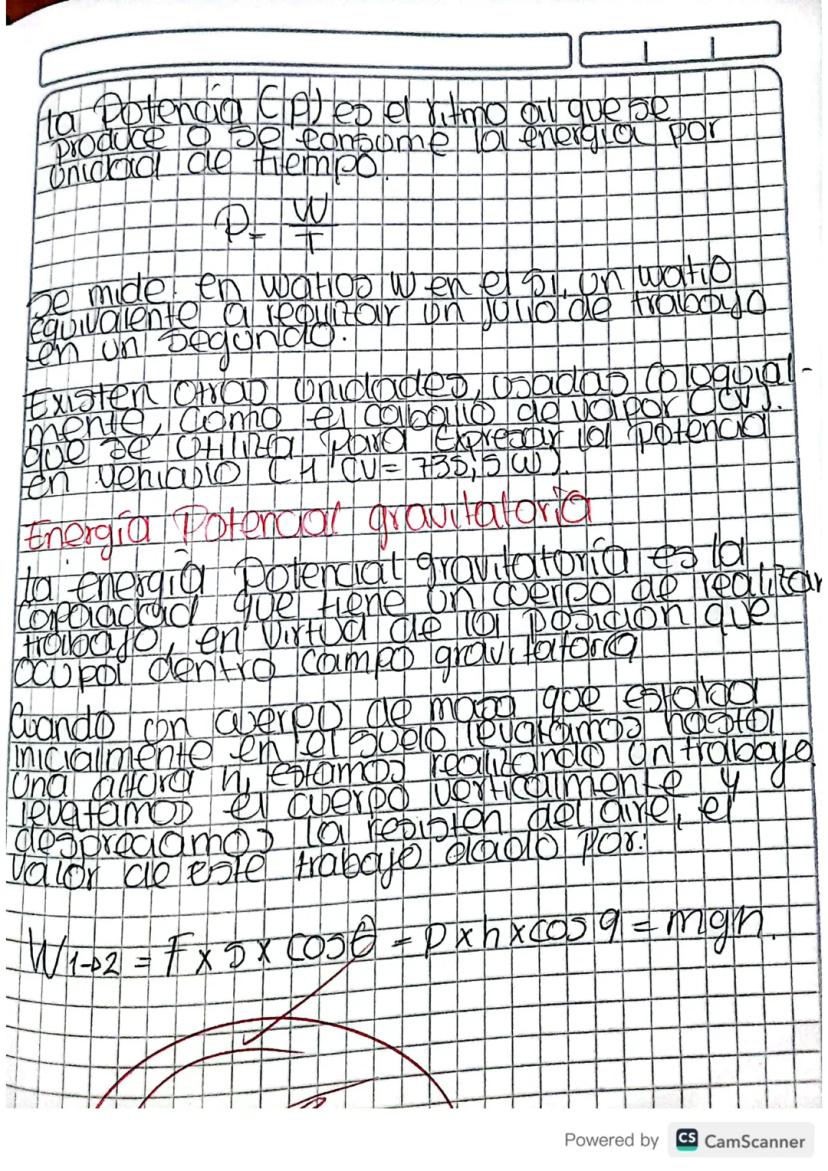 La Potencia (P) es el ritmo al que se
produce o se consume la energía por
unidad de tiempo.
P = W
T
Se mide en watios W en el SI, un watio
equivalente a realizar un julio de trabayo
en un segundo.
Existen otras unidades, usadas coloquial-
mente, como el caballo de vapor (CV).
que se utiliza para expresar la potencia
en vehiculo (1 CV = 735,5 W).
Energía Potencial gravitatoria
La energía potencial gravitatoria es la
capacidad que tiene un cuerpo de realizar
trabajo, en virtud de la posición que
ocupa dentro campo gravitatoria
Cuando con cuerpo de masa que estaba
inicialmente en el suelo levatamos hasta
una altura h, estamos realizando un trabayo
levatamos el cuerpo verticalmente y
despreciamos la resisten del aire, el
valor de este trabayo dado por:
W 1→2 = F x S x cos θ = P x h x cos 9 = mgh.
Powered by CS CamScanner